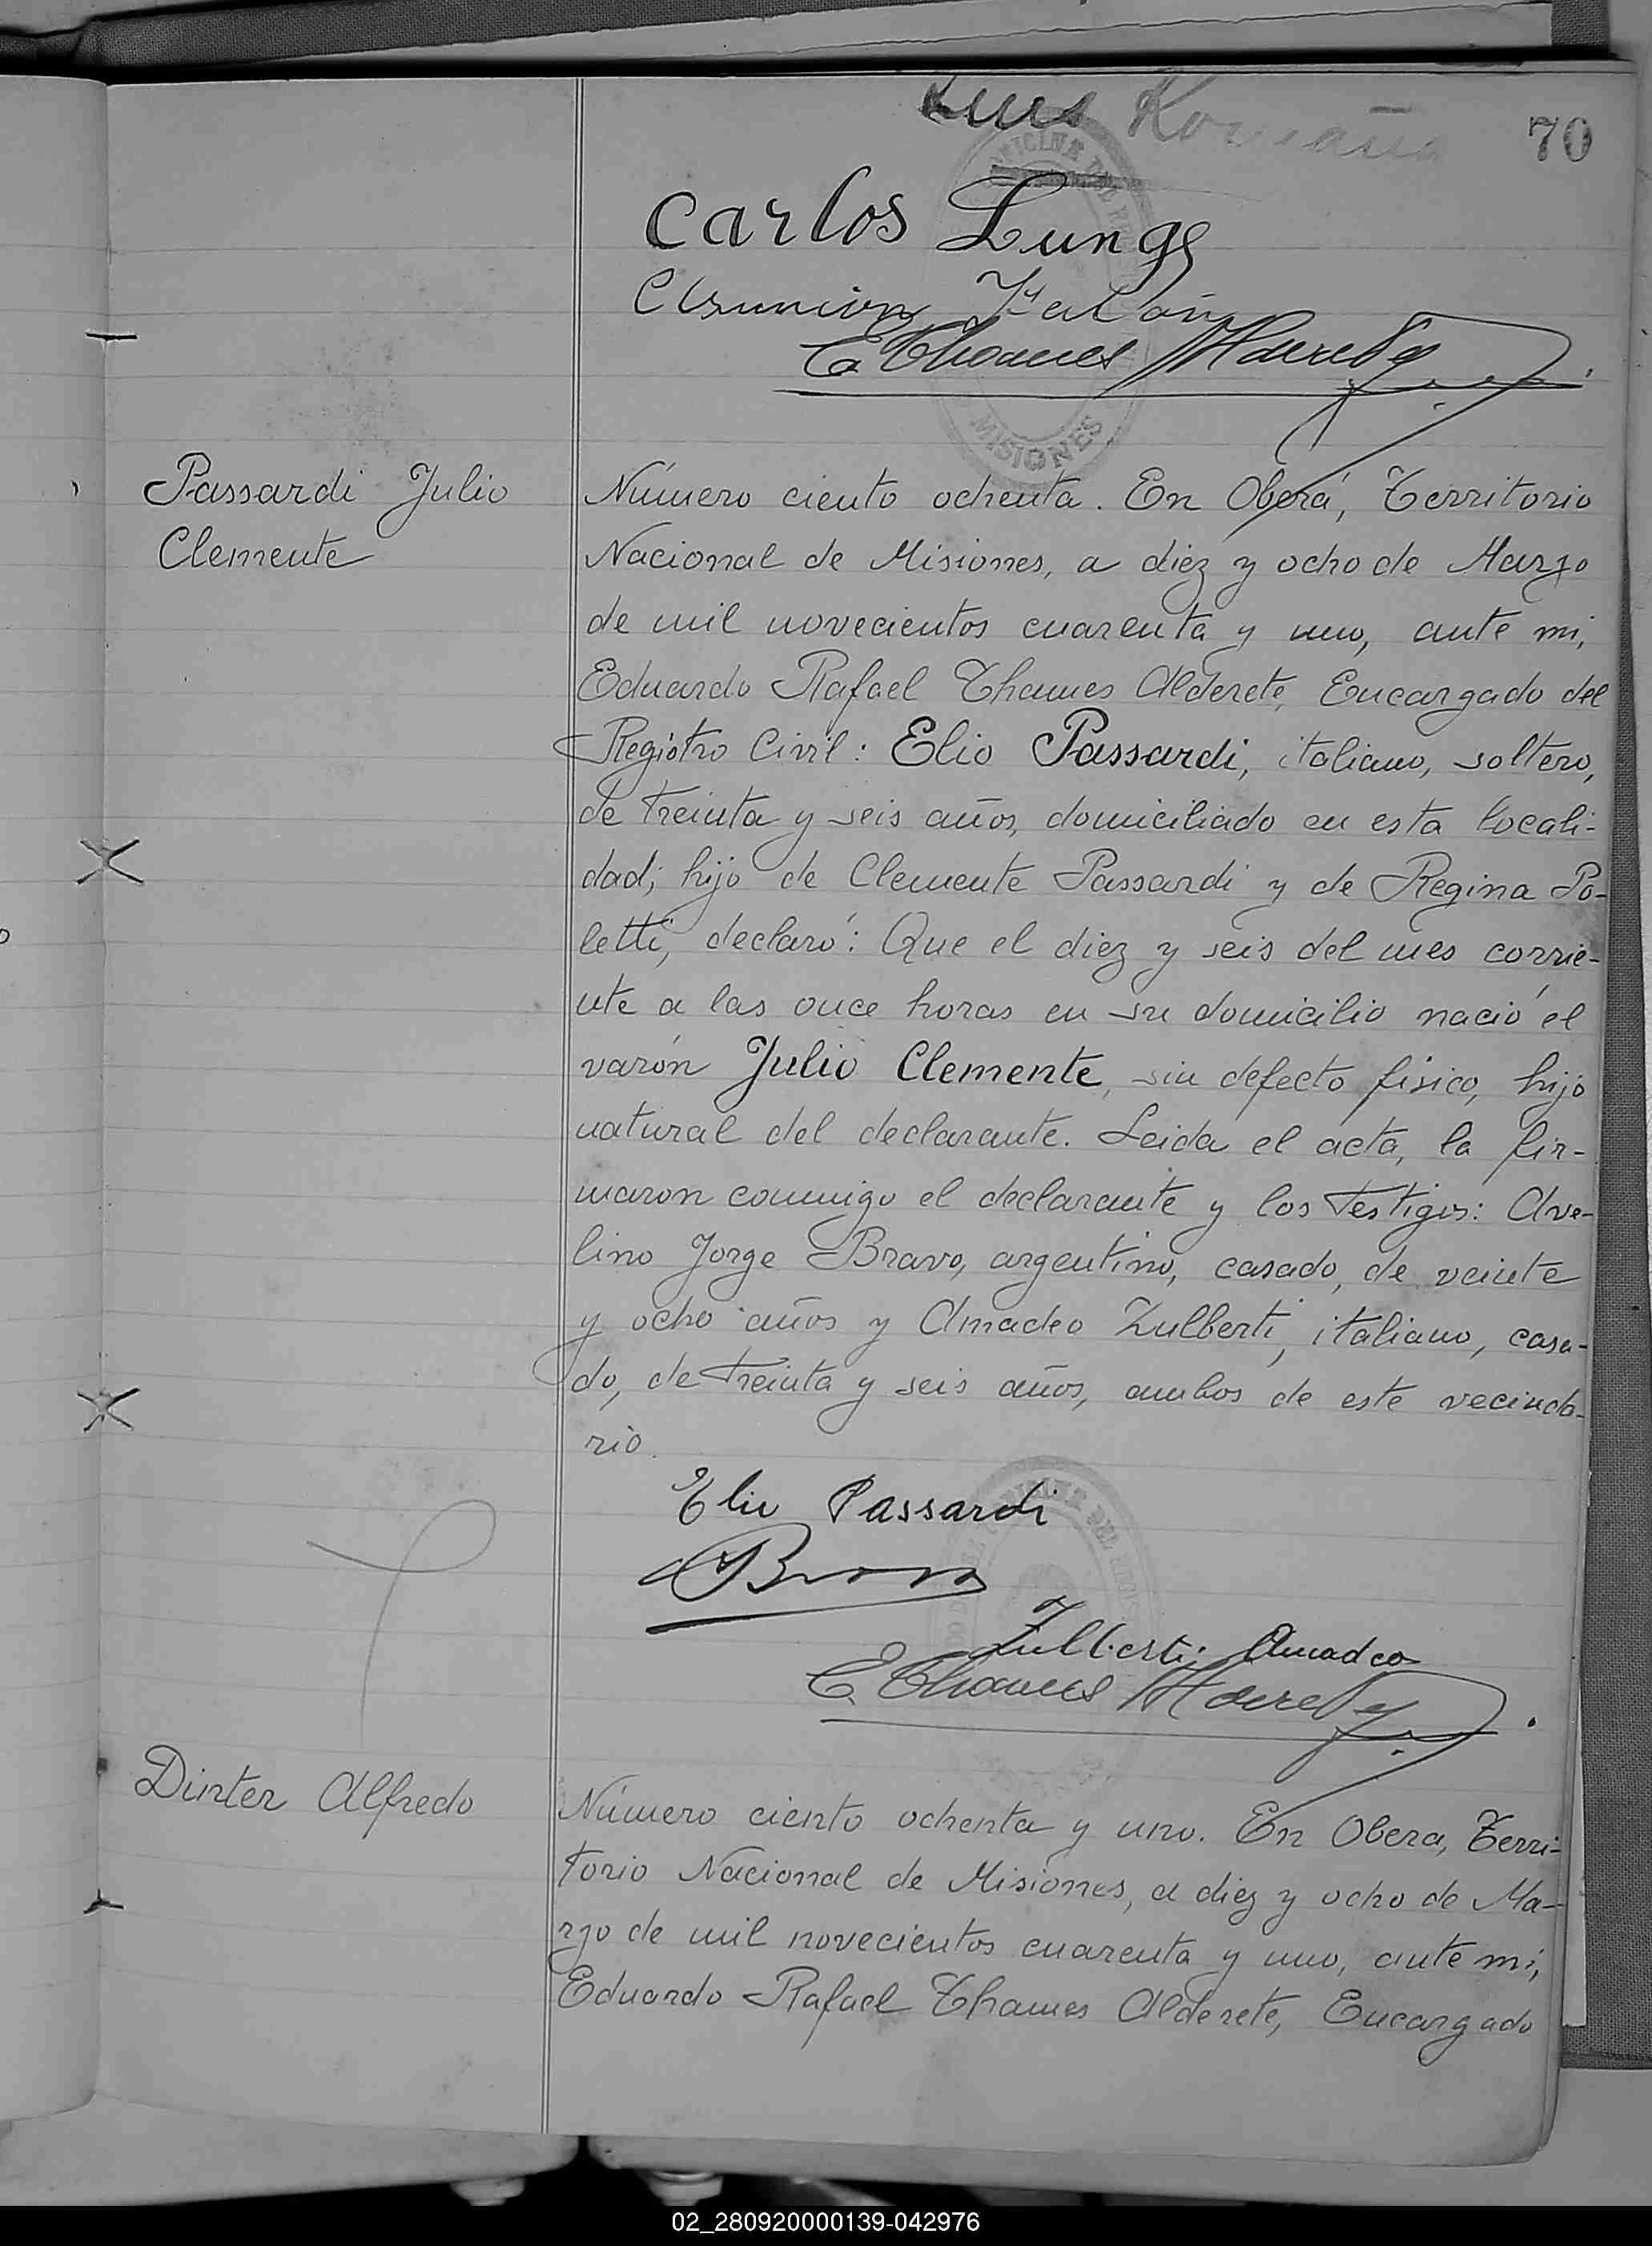 Luis
70
Carlos Lunge
Asuncion
E Thames Alderete
OFICINA DEL
MISIONES
Passardi Julio
Clemente
Número ciento ochenta. En Oberá, Territorio
Nacional de Misiones, a diez y ocho de Marzo
de mil novecientos cuarenta y uno, ante mi,
Eduardo Rafael Thames Alderete, Encargado del
Registro Civil: Elio Passardi, italiano, soltero,
de treinta y seis años, domiciliado en esta locali-
dad; hijo de Clemente Passardi y de Regina Po-
letti, declaró: Que el diez y seis del mes corrie-
nte a las once horas en su domicilio nació el
varón Julio Clemente, sin defecto fisico, hijo
natural del declarante. Leida el acta, la fir-
maron conmigo el declarante y los testigos: Ave-
lino Jorge Bravo, argentino, casado, de veinte
y ocho años y Amadeo Zulberti, italiano, casa-
do, de treinta y seis años, ambos de este vecinda-
rio.
Elio Passardi
Bravo
Zulberti Amadeo
E Thames Alderete
Dinter Alfredo
Número ciento ochenta y uno. En Obera, Terri-
torio Nacional de Misiones, a diez y ocho de Ma-
rzo de mil novecientos cuarenta y uno, ante mi,
Eduardo Rafael Thames Alderete, Encargado
02_280920000139-042976